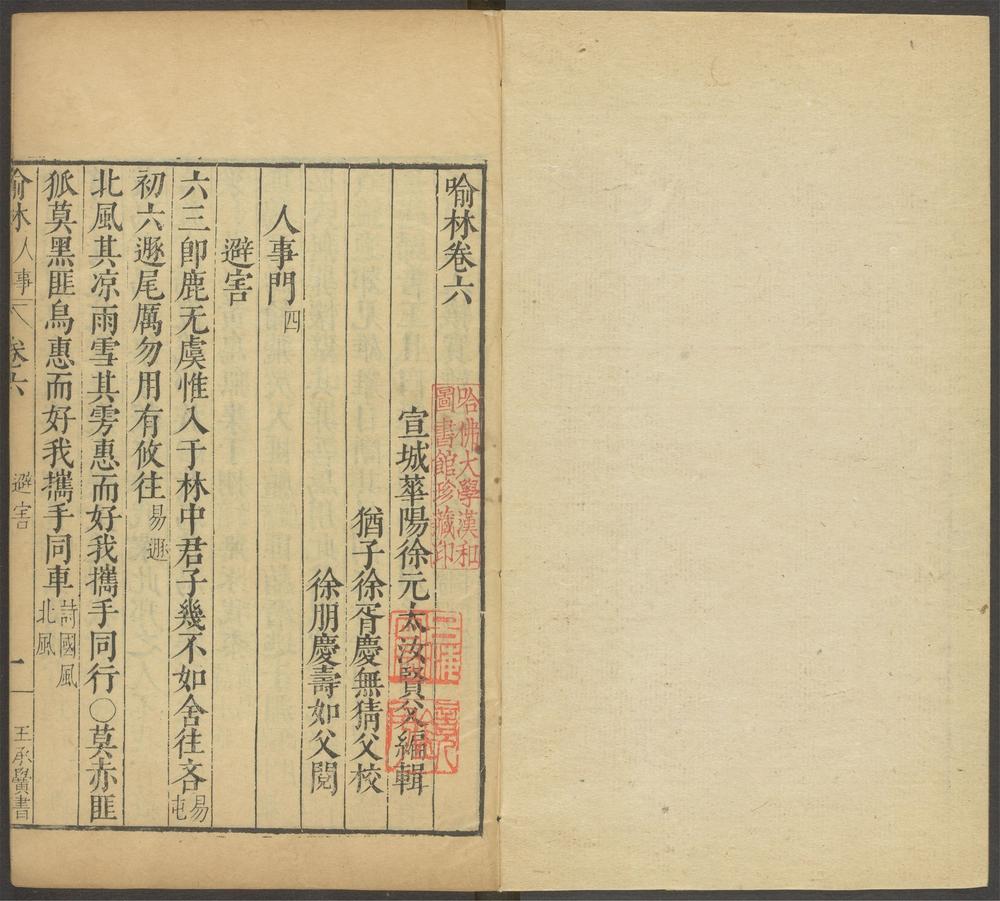 喻林卷六
宣城華陽徐元太汝賢父編輯
猶子徐胥慶無猜父校
徐朋慶壽如父閱
人事門四
避害
六三卽鹿无虞惟入于林中君子幾不如舍往吝易屯
初六遯尾厲勿用有攸往易遯
北風其凉雨雪其雱惠而好我攜手同行○莫赤匪
狐莫黑匪烏惠而好我攜手同車詩國風北風
喻林人事 卷六 避害 一 王承賢書
哈佛大學漢和
圖書館珍藏印